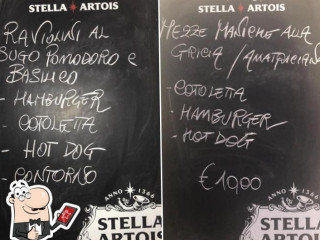 STELLA ARTOIS
RAVIOLINI AL
SUGO POMODORO E
BASILICO
- HAMBURGER
- COTOLETTA
- HOT DOG
- CONTORNO
ANNO 1366
STELLA
ARTOIS
STELLA ARTOIS
MEZZE MANICHE ALLA
GRICIA / AMATRICIANA
- COTOLETTA
- HAMBURGER
- HOT DOG
€ 10,00
ANNO 1366
STELLA
ARTOIS